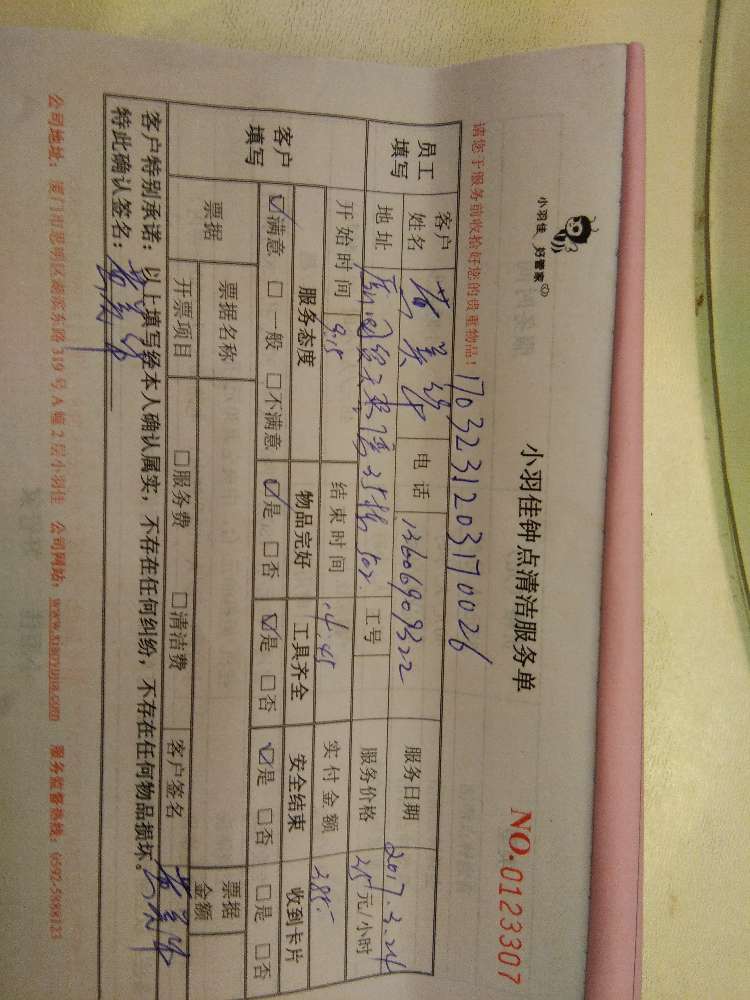 小羽佳 好管家
小羽佳钟点清洁服务单
NO.0123307
请您于服务前收拾好您的贵重物品!
1703231203170026
员工填写 客户姓名 黄 电话 13606909322 服务日期 2017.3.24
地址 35 502 工号 服务价格 35元/小时
开始时间 9.15 结束时间 .4.45 实付金额 385-
客户填写 服务态度 物品完好 工具齐全 安全结束 收到卡片
☑满意 □一般 □不满意 ☑是 □否 ☑是 □否 ☑是 □否 □是 □否
票据 票据名称 票据金额
开票项目 □服务费 □清洁费 客户签名 黄
客户特别承诺:以上填写经本人确认属实,不存在任何纠纷,不存在任何物品损坏。
特此确认签名:黄
公司地址:厦门市思明区湖滨东路319号A幢2层小羽佳 公司网站:www.xiaoyujia.com 服务监督热线:0592-5888123